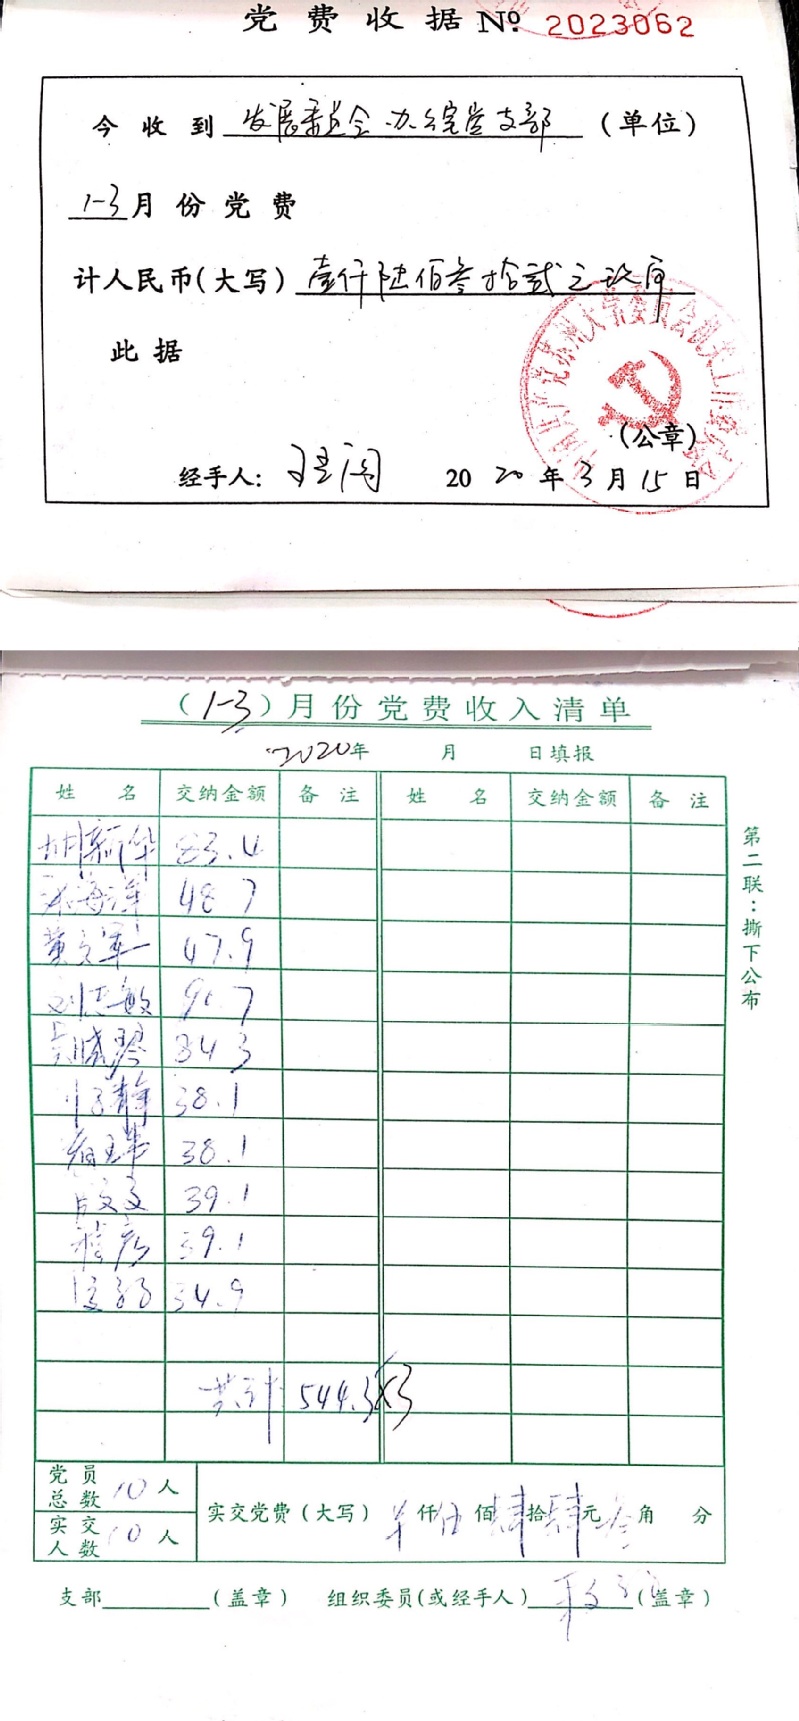 党费收据 № 2023062
今收到 发展委员会办综党支部 (单位)
1-3月份党费
计人民币(大写) 壹仟陆佰叁拾贰元玖角
此据
(公章)
经手人:
2020年3月15日
(1-3)月份党费收入清单
2020年 月 日填报
姓名 交纳金额 备注 姓名 交纳金额 备注
胡新华 83.4
海洋 48.7
黄文军 47.9
刘志敏 90.7
吴晓琴 84.3
静 38.1
38.1
卢文文 39.1
彦 39.1
34.9
共计 544.3×3
党员总数 10人
实交人数 10人
实交党费(大写) 仟伍佰肆拾肆元叁角 分
支部 (盖章) 组织委员(或经手人) (盖章)
第二联:撕下公布